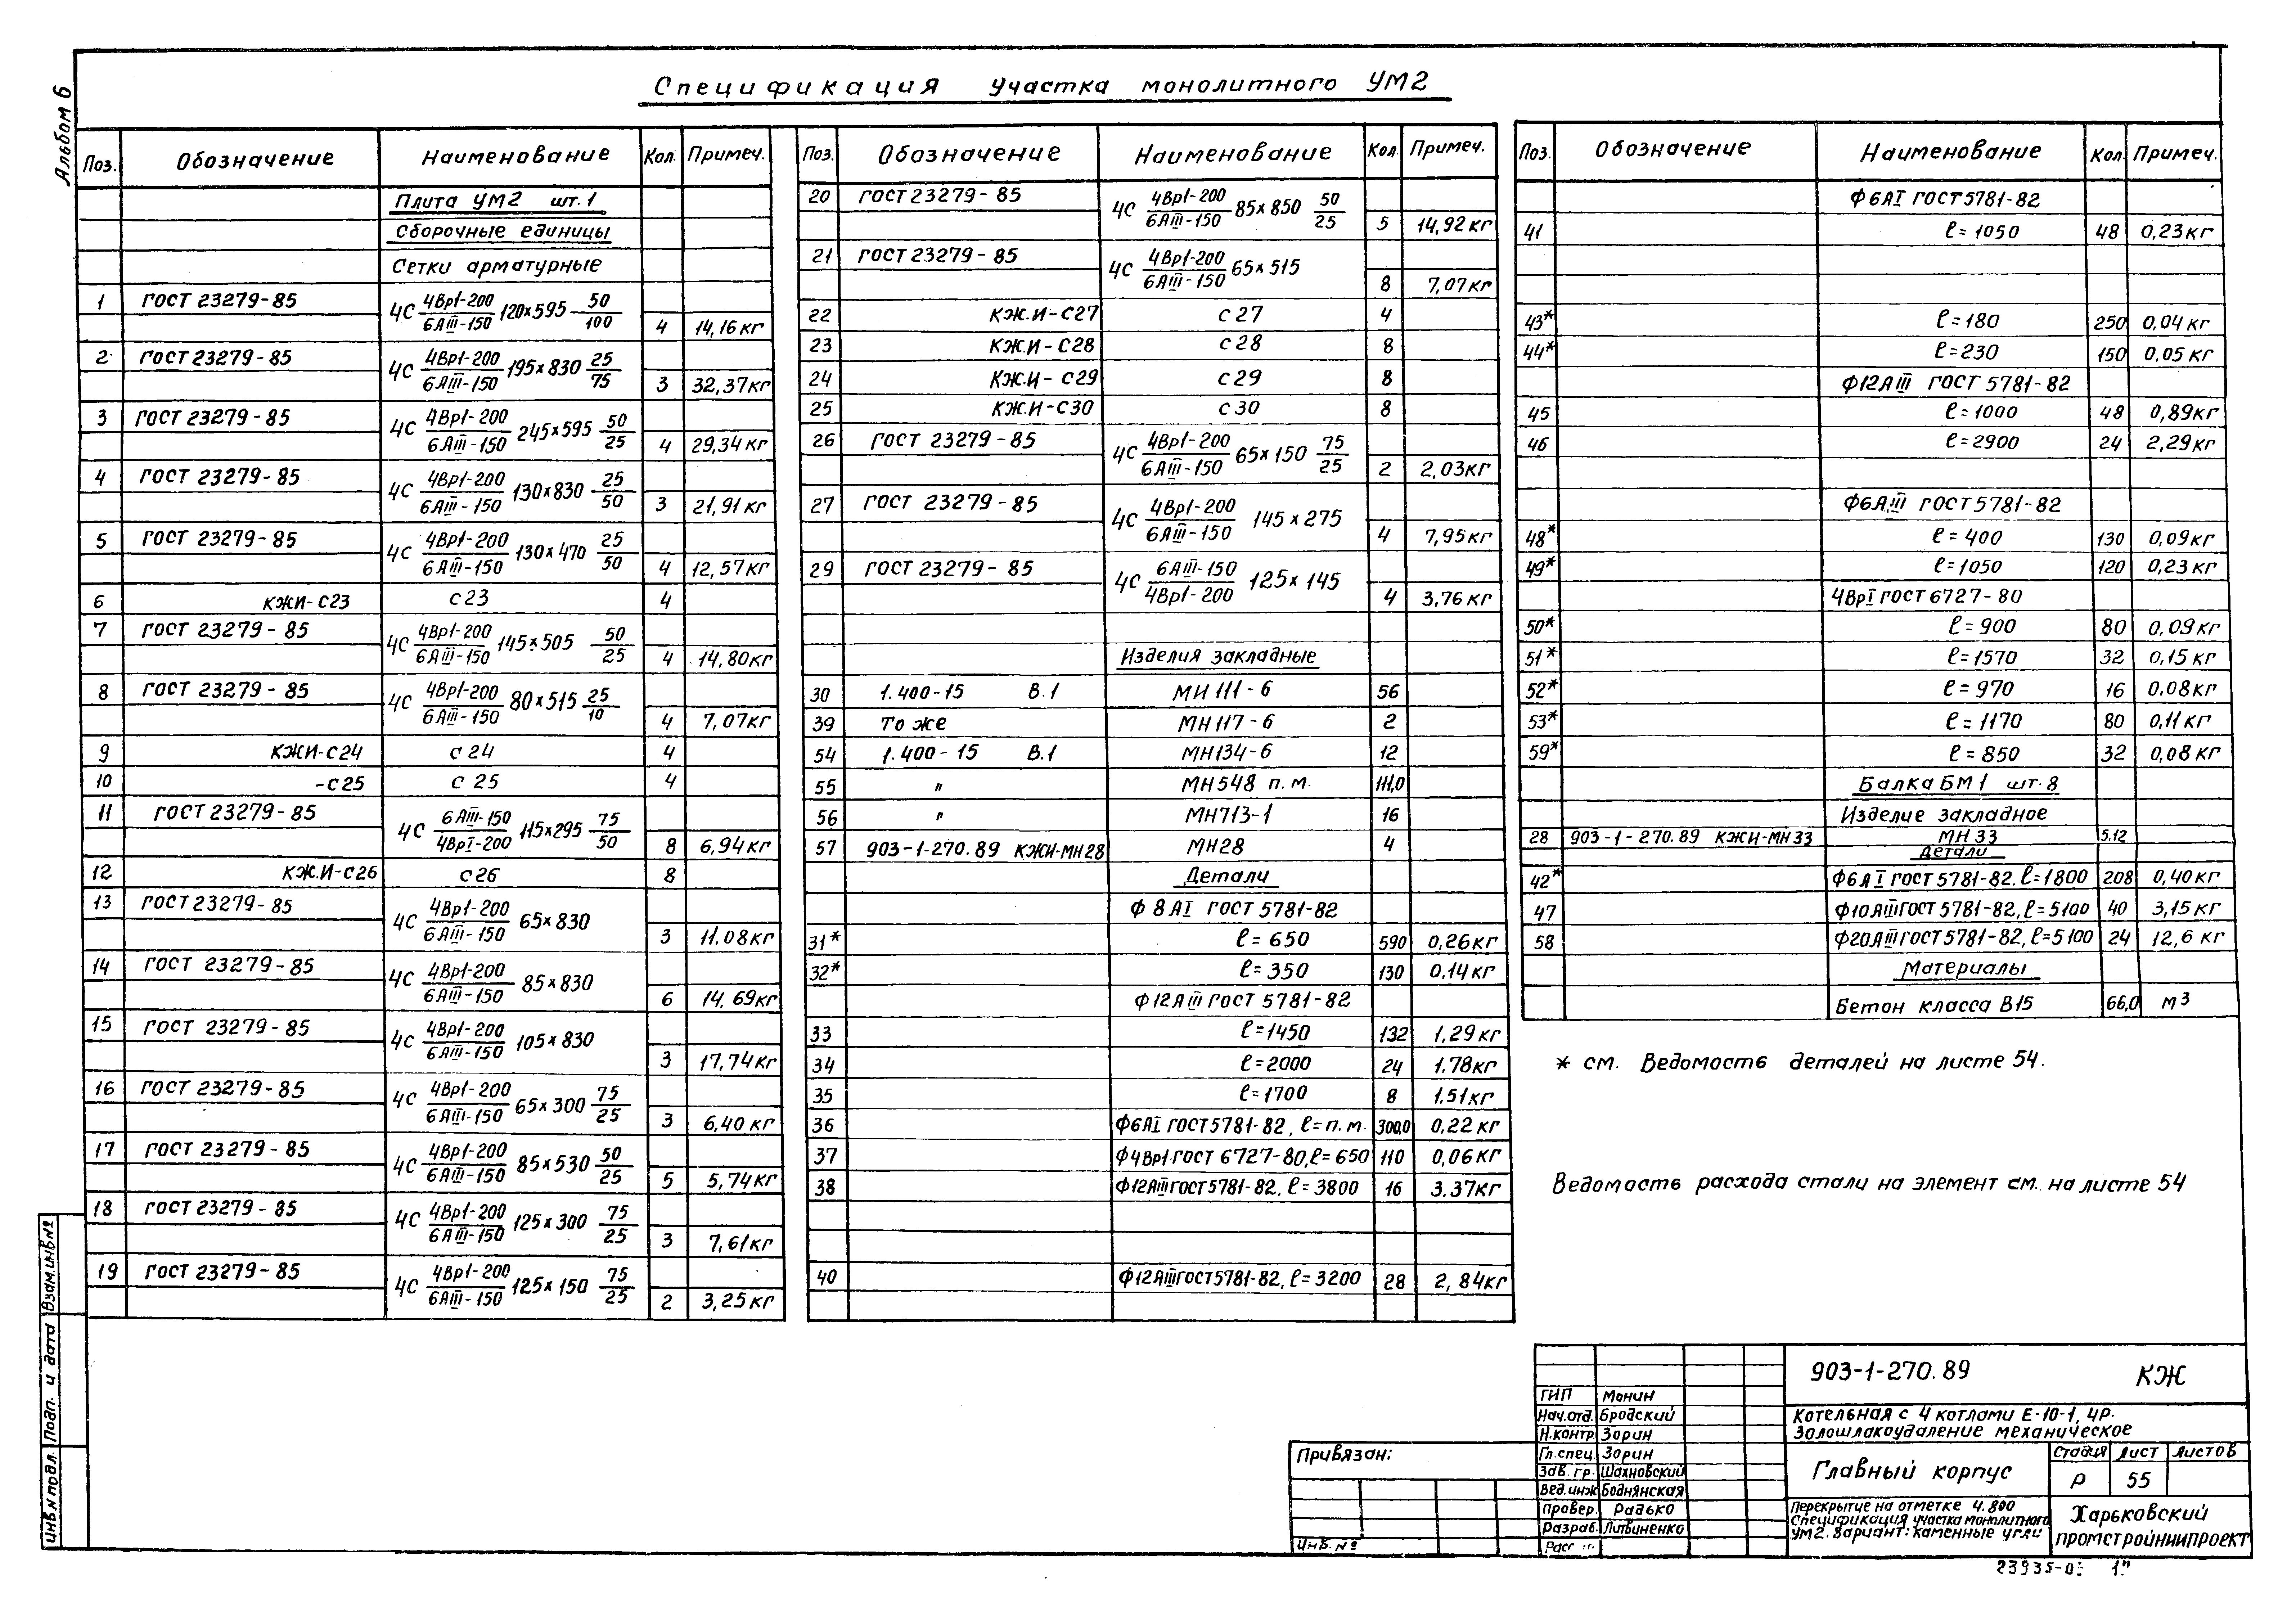 Альбом 6
Спецификация участка монолитного УМ2
Поз. Обозначение Наименование Кол. Примеч.
Плита УМ2 шт. 1
Сборочные единицы
Сетки арматурные
1 ГОСТ 23279-85 4С 4Вр1-200/6АIII-150 120×595 50/100 4 14,16кг
2 ГОСТ 23279-85 4С 4Вр1-200/6АIII-150 195×830 25/75 3 32,37кг
3 ГОСТ 23279-85 4С 4Вр1-200/6АIII-150 245×595 50/25 4 29,34кг
4 ГОСТ 23279-85 4С 4Вр1-200/6АIII-150 130×830 25/50 3 21,91кг
5 ГОСТ 23279-85 4С 4Вр1-200/6АIII-150 130×470 25/50 4 12,57кг
6 КЖИ-С23 С23 4
7 ГОСТ 23279-85 4С 4Вр1-200/6АIII-150 145×505 50/25 4 14,80кг
8 ГОСТ 23279-85 4С 4Вр1-200/6АIII-150 80×515 25/10 4 7,07кг
9 КЖИ-С24 С24 4
10 -С25 С25 4
11 ГОСТ 23279-85 4С 6АIII-150/4ВрI-200 115×295 75/50 8 6,94кг
12 КЖ.И-С26 С26 8
13 ГОСТ 23279-85 4С 4Вр1-200/6АIII-150 65×830 3 11,08кг
14 ГОСТ 23279-85 4С 4Вр1-200/6АIII-150 85×830 6 14,69кг
15 ГОСТ 23279-85 4С 4Вр1-200/6АIII-150 105×830 3 17,74кг
16 ГОСТ 23279-85 4С 4Вр1-200/6АIII-150 65×300 75/25 3 6,40кг
17 ГОСТ 23279-85 4С 4Вр1-200/6АIII-150 85×530 50/25 5 5,74кг
18 ГОСТ 23279-85 4С 4Вр1-200/6АIII-150 125×300 75/25 3 7,61кг
19 ГОСТ 23279-85 4С 4Вр1-200/6АIII-150 125×150 75/25 2 3,25кг
Поз. Обозначение Наименование Кол. Примеч.
20 ГОСТ 23279-85 4С 4Вр1-200/6АIII-150 85×850 50/25 5 14,92кг
21 ГОСТ 23279-85 4С 4Вр1-200/6АIII-150 65×515 8 7,07кг
22 КЖ.И-С27 С27 4
23 КЖ.И-С28 С28 8
24 КЖ.И-С29 С29 8
25 КЖ.И-С30 С30 8
26 ГОСТ 23279-85 4С 4Вр1-200/6АIII-150 65×150 75/25 2 2,03кг
27 ГОСТ 23279-85 4С 4Вр1-200/6АIII-150 145×275 4 7,95кг
29 ГОСТ 23279-85 4С 6АIII-150/4Вр1-200 125×145 4 3,76кг
Изделия закладные
30 1.400-15 В.1 МИ 111-6 56
39 То же МН 117-6 2
54 1.400-15 В.1 МН134-6 12
55 " МН548 п.м. 111,0
56 " МН713-1 16
57 903-1-270.89 КЖИ-МН28 МН28 4
Детали
Ф 8АI ГОСТ 5781-82
31* ℓ=650 590 0,26кг
32* ℓ=350 130 0,14кг
Ф12АIII ГОСТ 5781-82
33 ℓ=1450 132 1,29кг
34 ℓ=2000 24 1,78кг
35 ℓ=1700 8 1,51кг
36 Ф6АI ГОСТ5781-82, ℓ=п.м. 300,0 0,22кг
37 Ф4Вр1 ГОСТ 6727-80, ℓ=650 110 0,06кг
38 Ф12АIII ГОСТ5781-82, ℓ=3800 16 3,37кг
40 Ф12АIII ГОСТ5781-82, ℓ=3200 28 2,84кг
Поз. Обозначение Наименование Кол. Примеч.
Ф6АI ГОСТ5781-82
41 ℓ=1050 48 0,23кг
43* ℓ=180 250 0,04кг
44* ℓ=230 150 0,05кг
Ф12АIII ГОСТ 5781-82
45 ℓ=1000 48 0,89кг
46 ℓ=2900 24 2,29кг
Ф6АIII ГОСТ5781-82
48* ℓ=400 130 0,09кг
49* ℓ=1050 120 0,23кг
4ВрI ГОСТ 6727-80
50* ℓ=900 80 0,09кг
51* ℓ=1570 32 0,15кг
52* ℓ=970 16 0,08кг
53* ℓ=1170 80 0,11кг
59* ℓ=850 32 0,08кг
Балка БМ1 шт.8
Изделие закладное
28 903-1-270.89 КЖИ-МН33 МН33 5.12
Детали
42* Ф6АI ГОСТ5781-82. ℓ=1800 208 0,40кг
47 Ф10АIII ГОСТ5781-82, ℓ=5100 40 3,15кг
58 Ф20АIII ГОСТ5781-82, ℓ=5100 24 12,6 кг
Материалы
Бетон класса В15 66,0 м3
* см. Ведомость деталей на листе 54.
Ведомость расхода стали на элемент см. на листе 54
Взам.инв№
Подп. и дата
Инв.№подл.
Привязан:
Инв.№
ГИП Монин
Нач.отд. Бродский
Н.контр. Зорин
Гл.спец. Зорин
Зав.гр. Шахновский
Вед.инж Боднянская
Провер. Радько
Разраб. Литвиненко
903-1-270.89 КЖ
Котельная с 4 котлами Е-10-1,4Р.
Золошлакоудаление механическое
Главный корпус
Стадия Лист Листов
Р 55
Перекрытие на отметке 4.800
Спецификация участка монолитного
УМ2. Вариант: каменные угли
Харьковский
Промстройниипроект